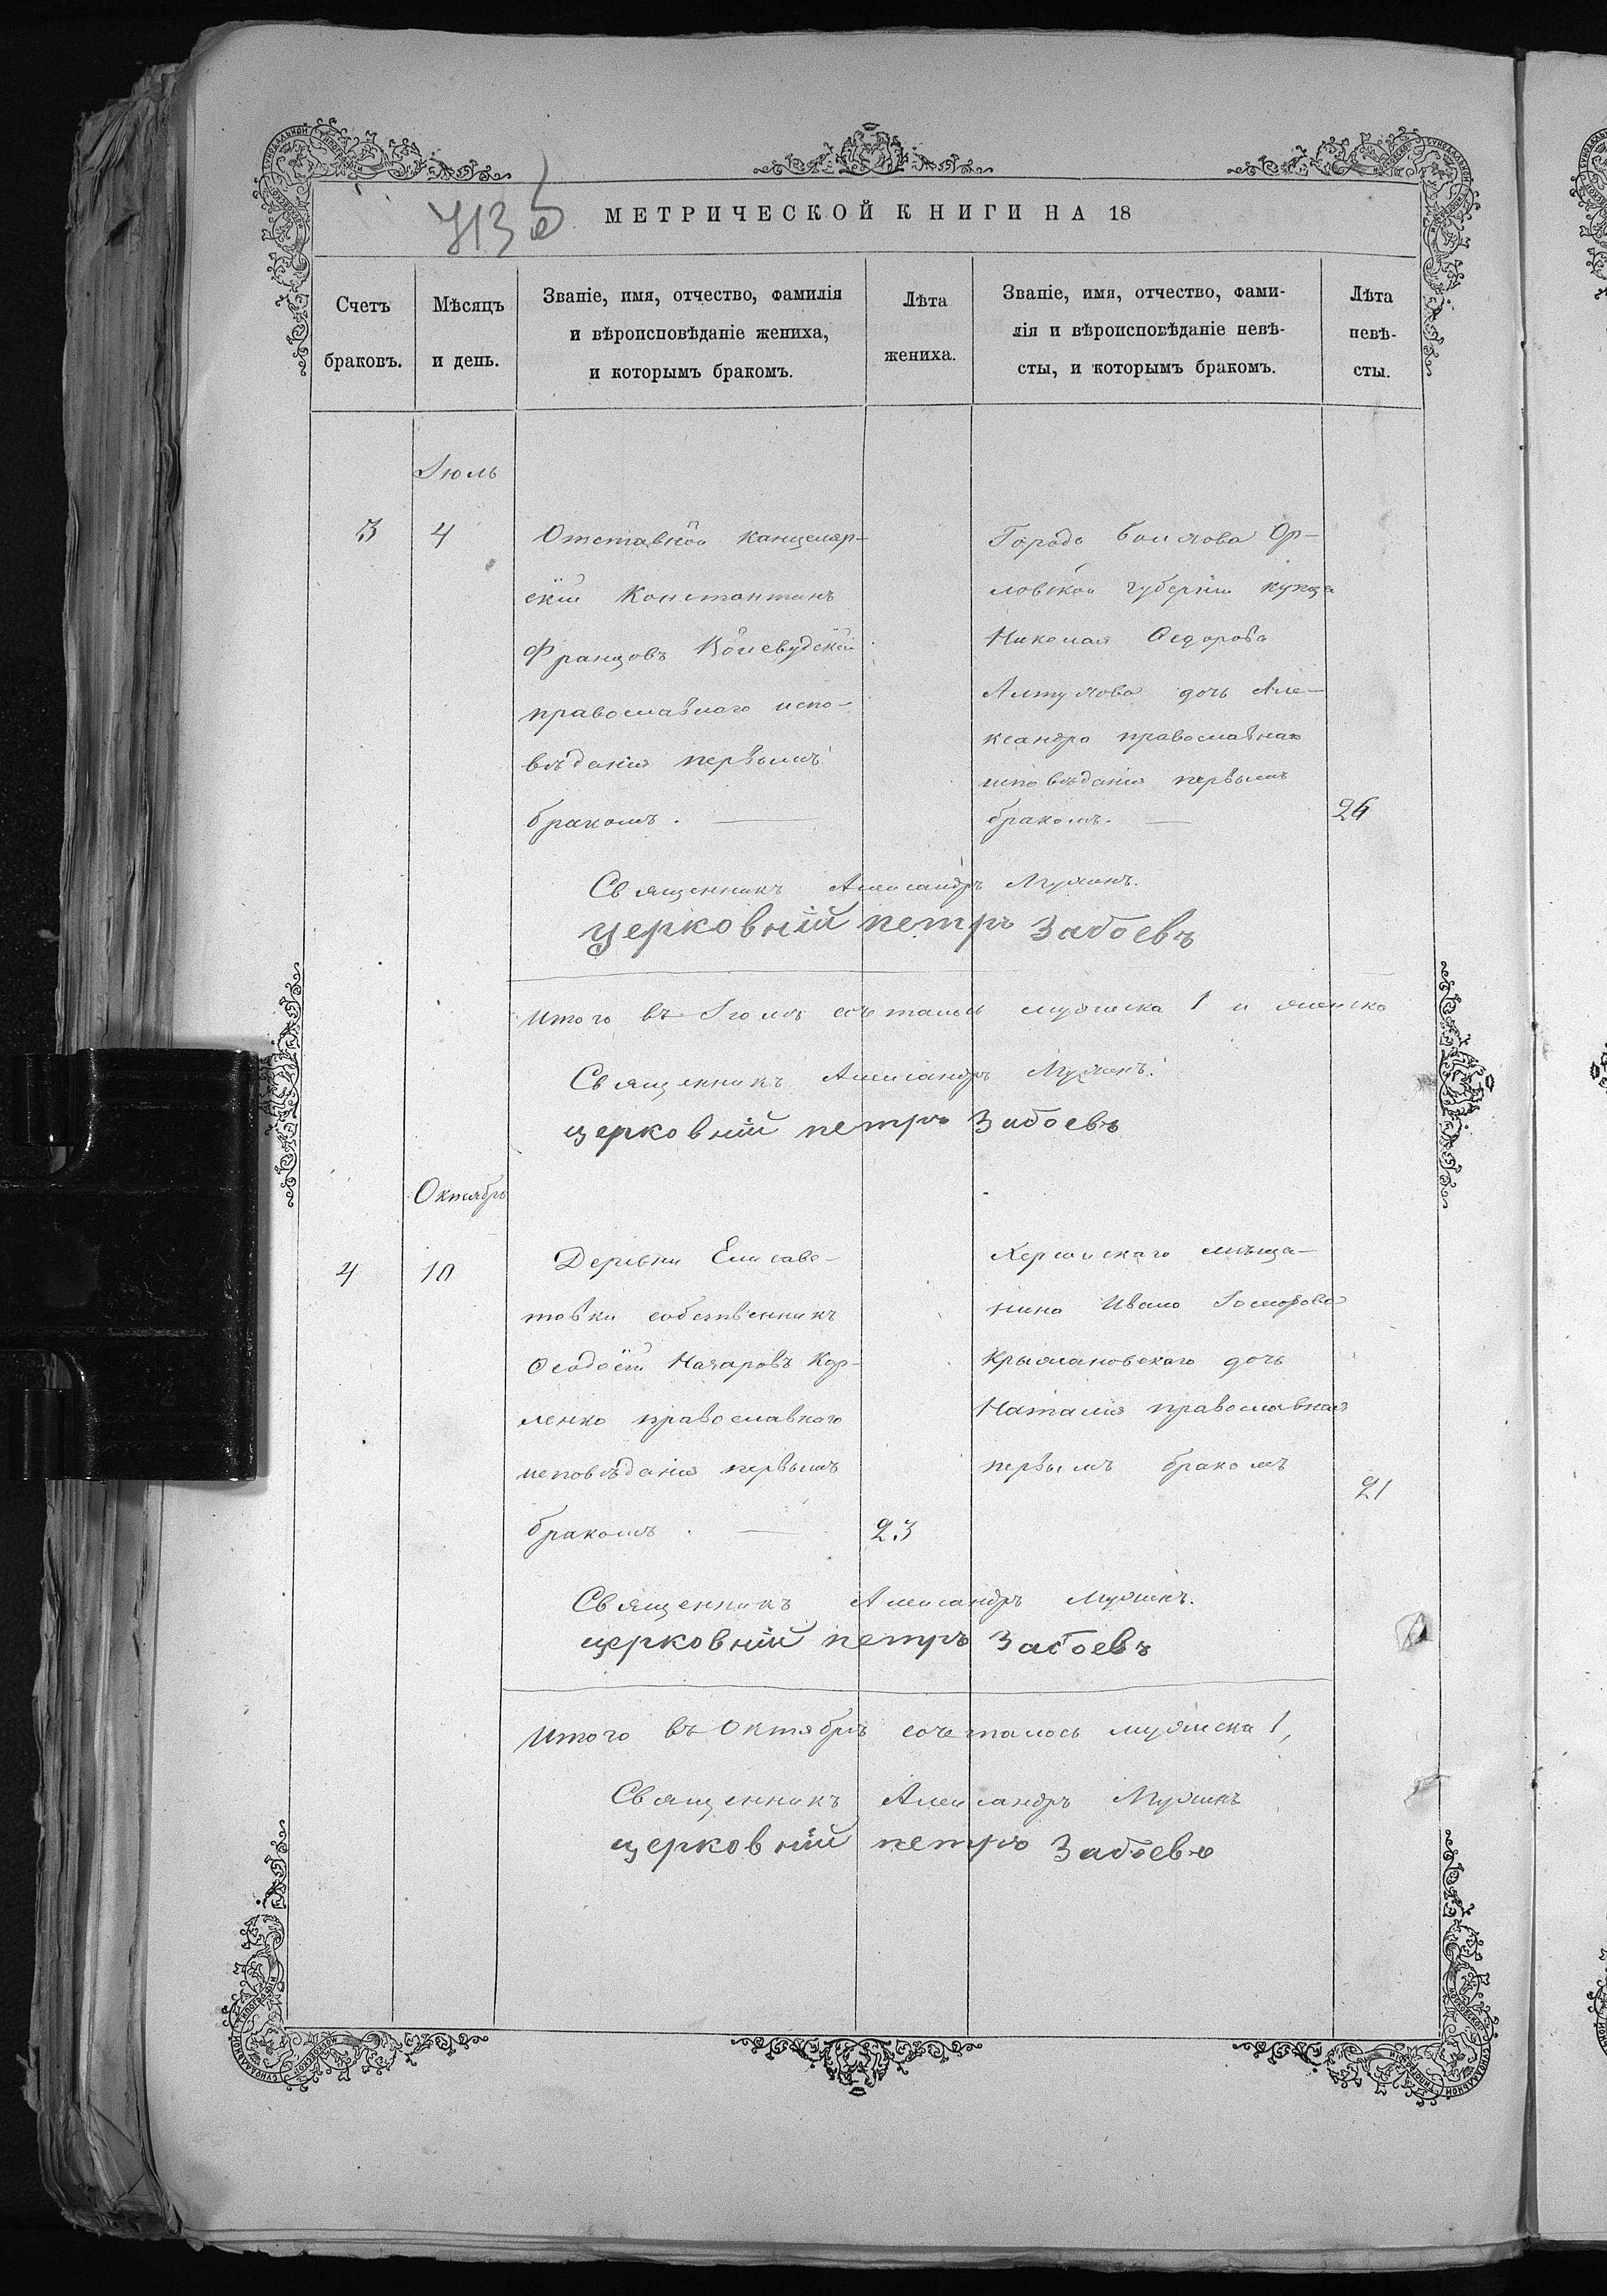 713 об
МЕТРИЧЕСКОЙ КНИГИ НА 18
Счетъ браковъ.
Мѣсяцъ и день.
Званіе, имя, отчество, фамилія
и вѣроисповѣданіе жениха,
и которымъ бракомъ.
Лѣта жениха.
Званіе, имя, отчество, фами-
лія и вѣроисповѣданіе невѣ-
сты, и которымъ бракомъ.
Лѣта невѣ-
сты.
Іюль
3
4
Отставной канцеляр-
скій Константинъ
Францовъ
православнаго испо-
вѣданія первымъ
бракомъ.
Города Болхова Ор-
ловской губерніи купца
Николая Ѳедорова
Алтухова дочь Але-
ксандра православнаго
исповѣданія первымъ
бракомъ.
26
Священникъ Александръ
церковній петръ Забоевъ
Итого въ Іюлѣ сочеталось мужеска 1 и женска
Священникъ Александръ
церковній петръ Забоевъ
Октябрь
4
10
Деревни Елисаве-
товки собственникъ
Ѳеодосій Назаровъ Кор-
ленко православнаго
исповѣданія первымъ
бракомъ.
23
Херсонскаго мѣща-
нина Ивана
Крыжановскаго дочь
Наталія православная
первымъ бракомъ
21
Священникъ Александръ
церковній петръ Забоевъ
Итого въ Октябрѣ сочеталось мужеска 1,
Священникъ Александръ
церковній петръ Забоевъ